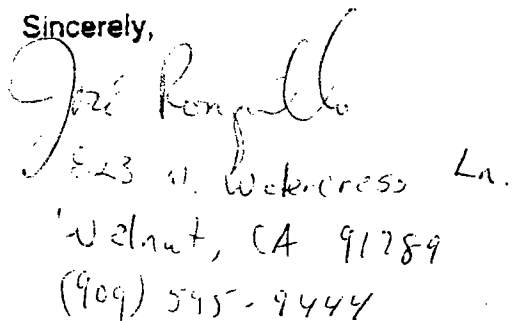 Sincerely,
José Ronquillo
N. Watercress Ln.
Walnut, CA 91789
(909) 595-9444